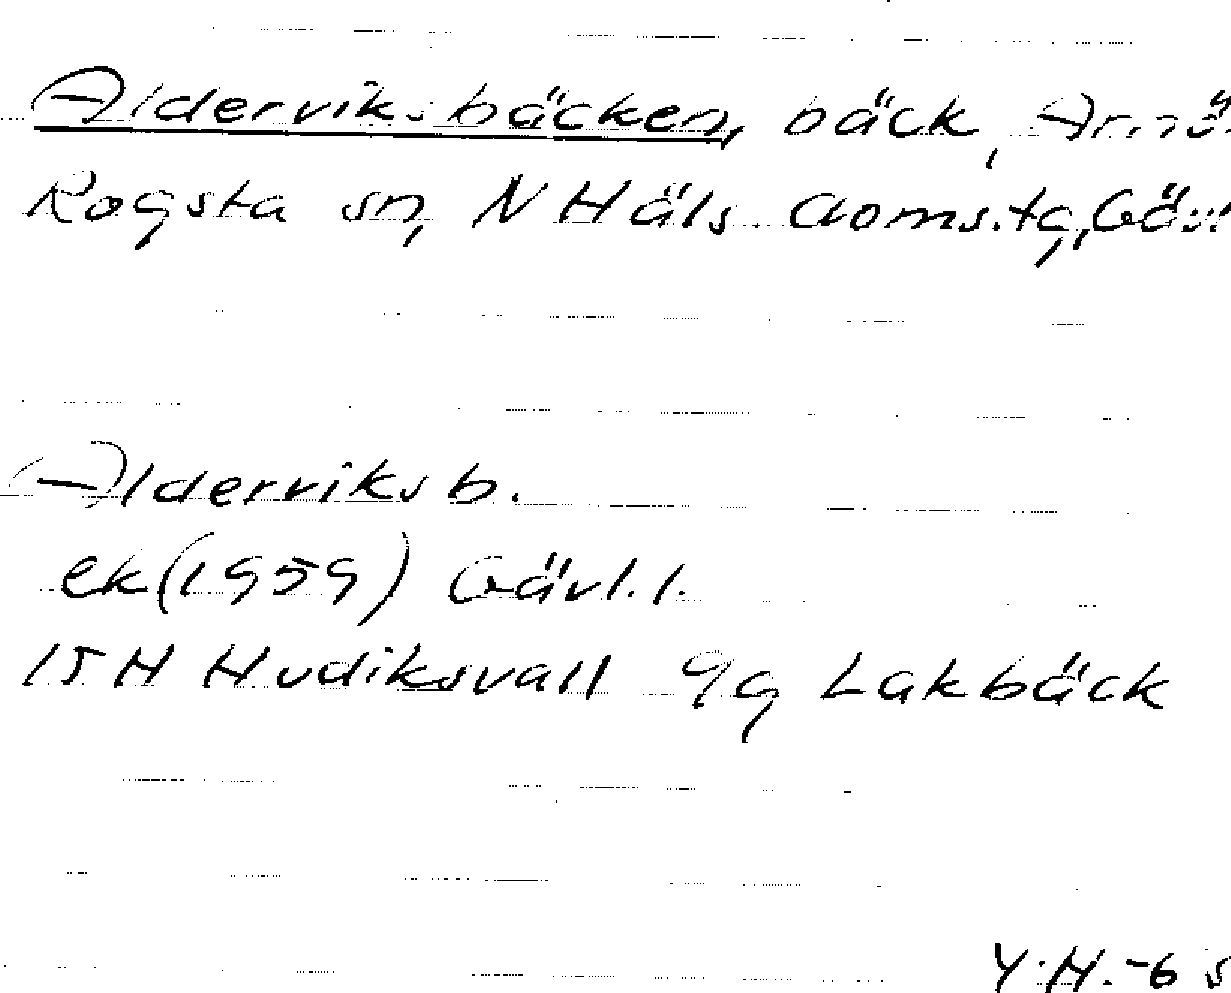 Alderviksbäcken, bäck, Arnö
Rogsta sn, N Häls. doms.tg, Gävl
Alderviks b.
ek (1959) Gävl.l.
15H Hudiksvall 9g Lakbäck
Y.H.-6